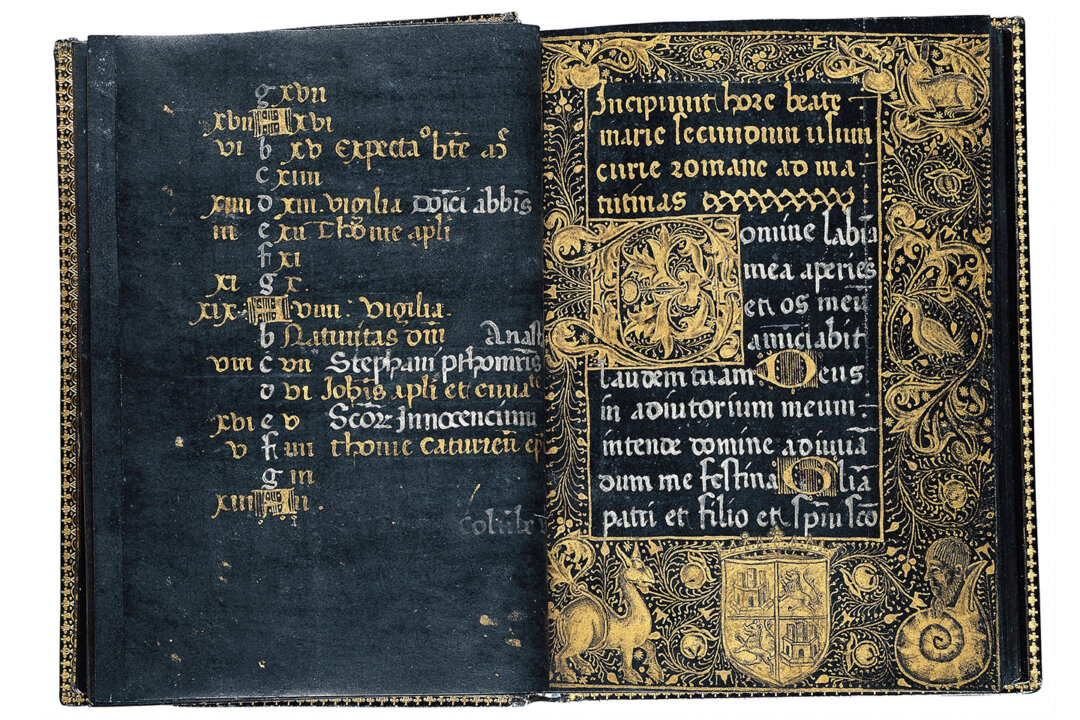 g xvii
xvii A xvi
vi b xv Expecta° bt̄e
c xiiii
xiiii d xiii vigilia abbis
iii e xii Thome apli
f xi
xi g x.
xix A viiii. vigilia.
b Nativitas dn̄i Anast
viii c vii Stephani
d vi Joh̄is apli et
xvi e v Innocencium
v f iiii thome
g iii
xiii A ii.
Incipiunt hore beate
marie secundum usum
curie romane ad ma
tutinas
Domine labia
mea aperies
et os meū
laudem tuam. Deus
in adiutorium meum
intende domine adiuuā
dum me festina Gl̄ia
patri et filio et sp̄iui sc̄o